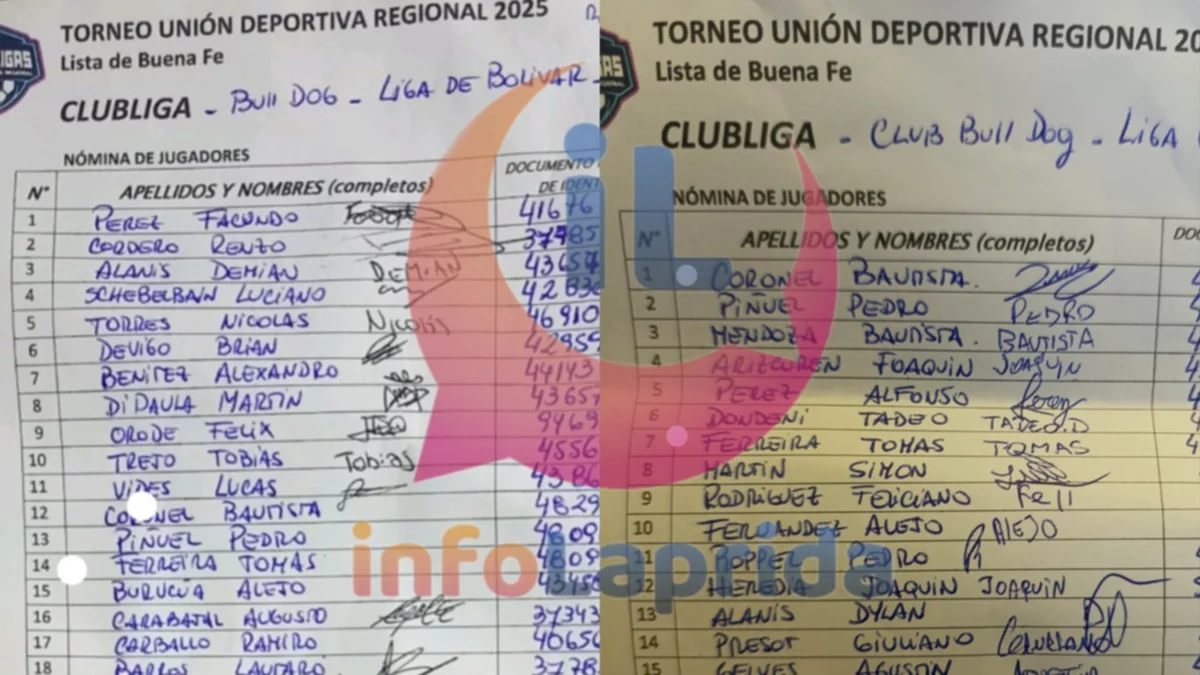 TORNEO UNIÓN DEPORTIVA REGIONAL 2025
Lista de Buena Fe
CLUBLIGA - BUll DOG - LIGA DE BOLIVAR
NÓMINA DE JUGADORES
N° APELLIDOS Y NOMBRES (completos) DOCUMENTO DE IDENT
1 PEREZ FACUNDO 41676
2 CORDERO RENZO 37985
3 ALANIS DEMIAN DEMIAN 43657
4 SCHEBELBAIN LUCIANO 42830
5 TORRES NICOLAS Nicolás 46910
6 DEVIGO BRIAN 42959
7 BENITEZ ALEXANDRO 44143
8 DI PAULA MARTIN 43657
9 ORODE FELIX 9469
10 TREJO TOBIAS Tobias 4556
11 VIDES LUCAS 4386
12 CORONEL BAUTISTA 4829
13 PIÑUEL PEDRO 4809
14 FERREIRA TOMAS 4809
15 BURUCUA ALEJO 43456
16 CARABAJAL AUGUSTO 37343
17 CARBALLO RAMIRO 40656
18 BARROS LAUTARO 3778
IGAS
TORNEO UNIÓN DEPORTIVA REGIONAL 20
Lista de Buena Fe
CLUBLIGA - CLUB BUll DOg - LIGA
NÓMINA DE JUGADORES
N° APELLIDOS Y NOMBRES (completos) DOC
1 CORONEL BAUTISTA.
2 PIÑUEL PEDRO PEDRO
3 MENDOZA BAUTISTA. BAUTISTA
4 ARIZCUREN JOAQUIN JOAQUIN
5 PEREZ ALFONSO Perez
6 DONDENI TADEO TADEO.D
7 FERREIRA TOMAS TOMAS
8 MARTIN SIMON
9 RODRIGUEZ FELICIANO Fell
10 FERNANDEZ ALEJO ALEJO
11 ROPPEL PEDRO
12 HEREDIA JOAQUIN JOAQUIN
13 ALANIS DYLAN
14 PRESOT GIULIANO
15 GELVES AGUSTIN
iL
infolaprida